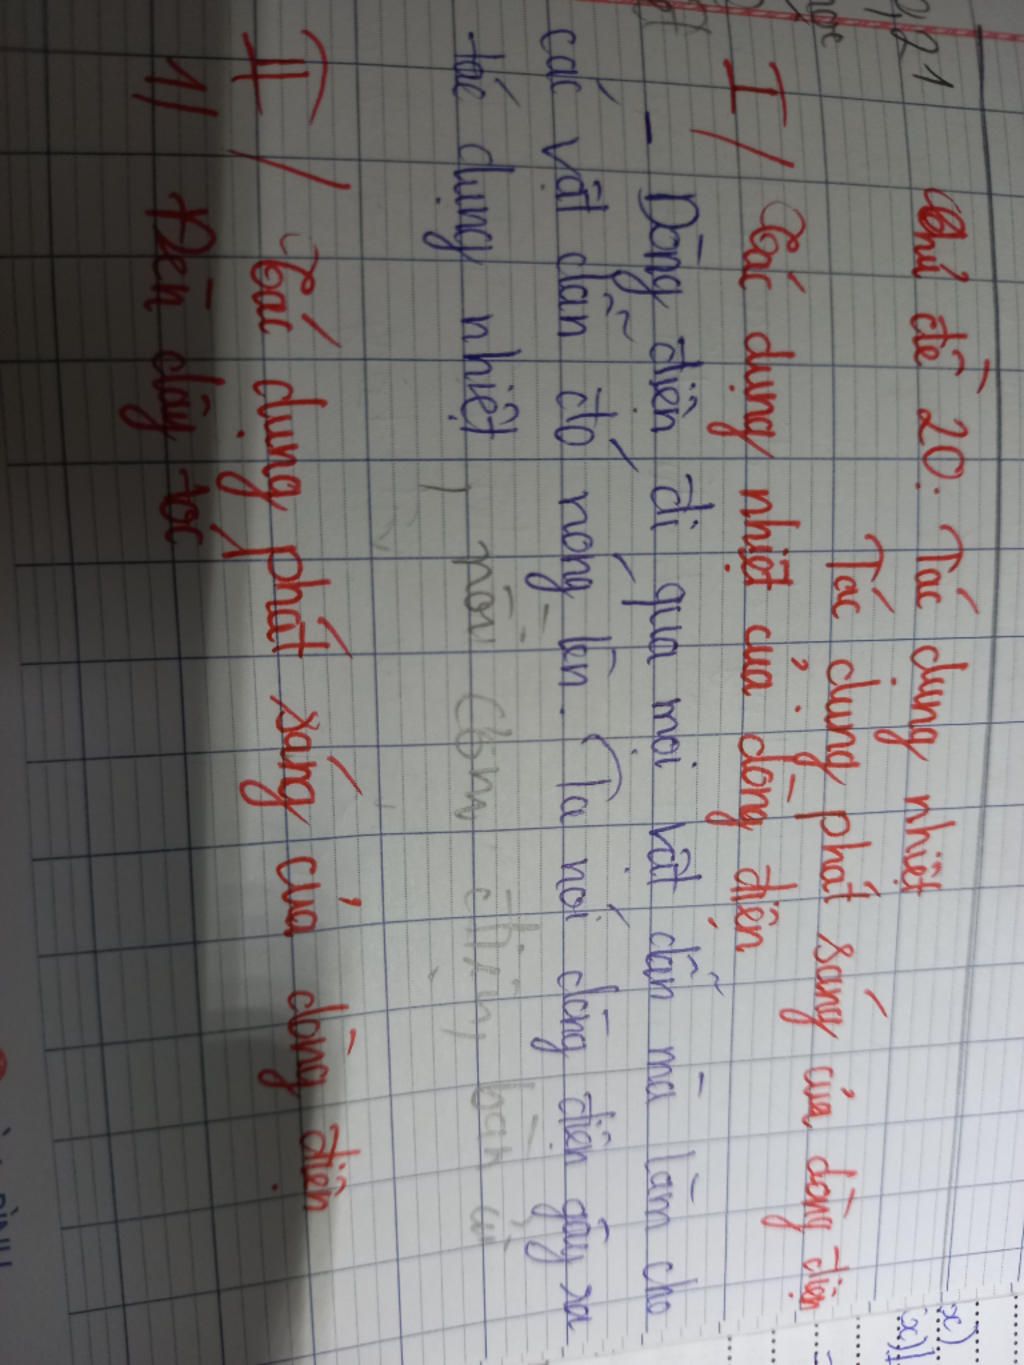 21
Chủ đề 20: Tác dụng nhiệt
Tác dụng phát sáng của dòng điện
I/ Tác dụng nhiệt của dòng điện
- Dòng điện đi qua mọi vật dẫn mà làm cho
các vật dẫn đó nóng lên. Ta nói dòng điện gây ra
tác dụng nhiệt, nồi cơm điện, bàn ủi
II/ Tác dụng phát sáng của dòng điện
1/ Đèn dây tóc